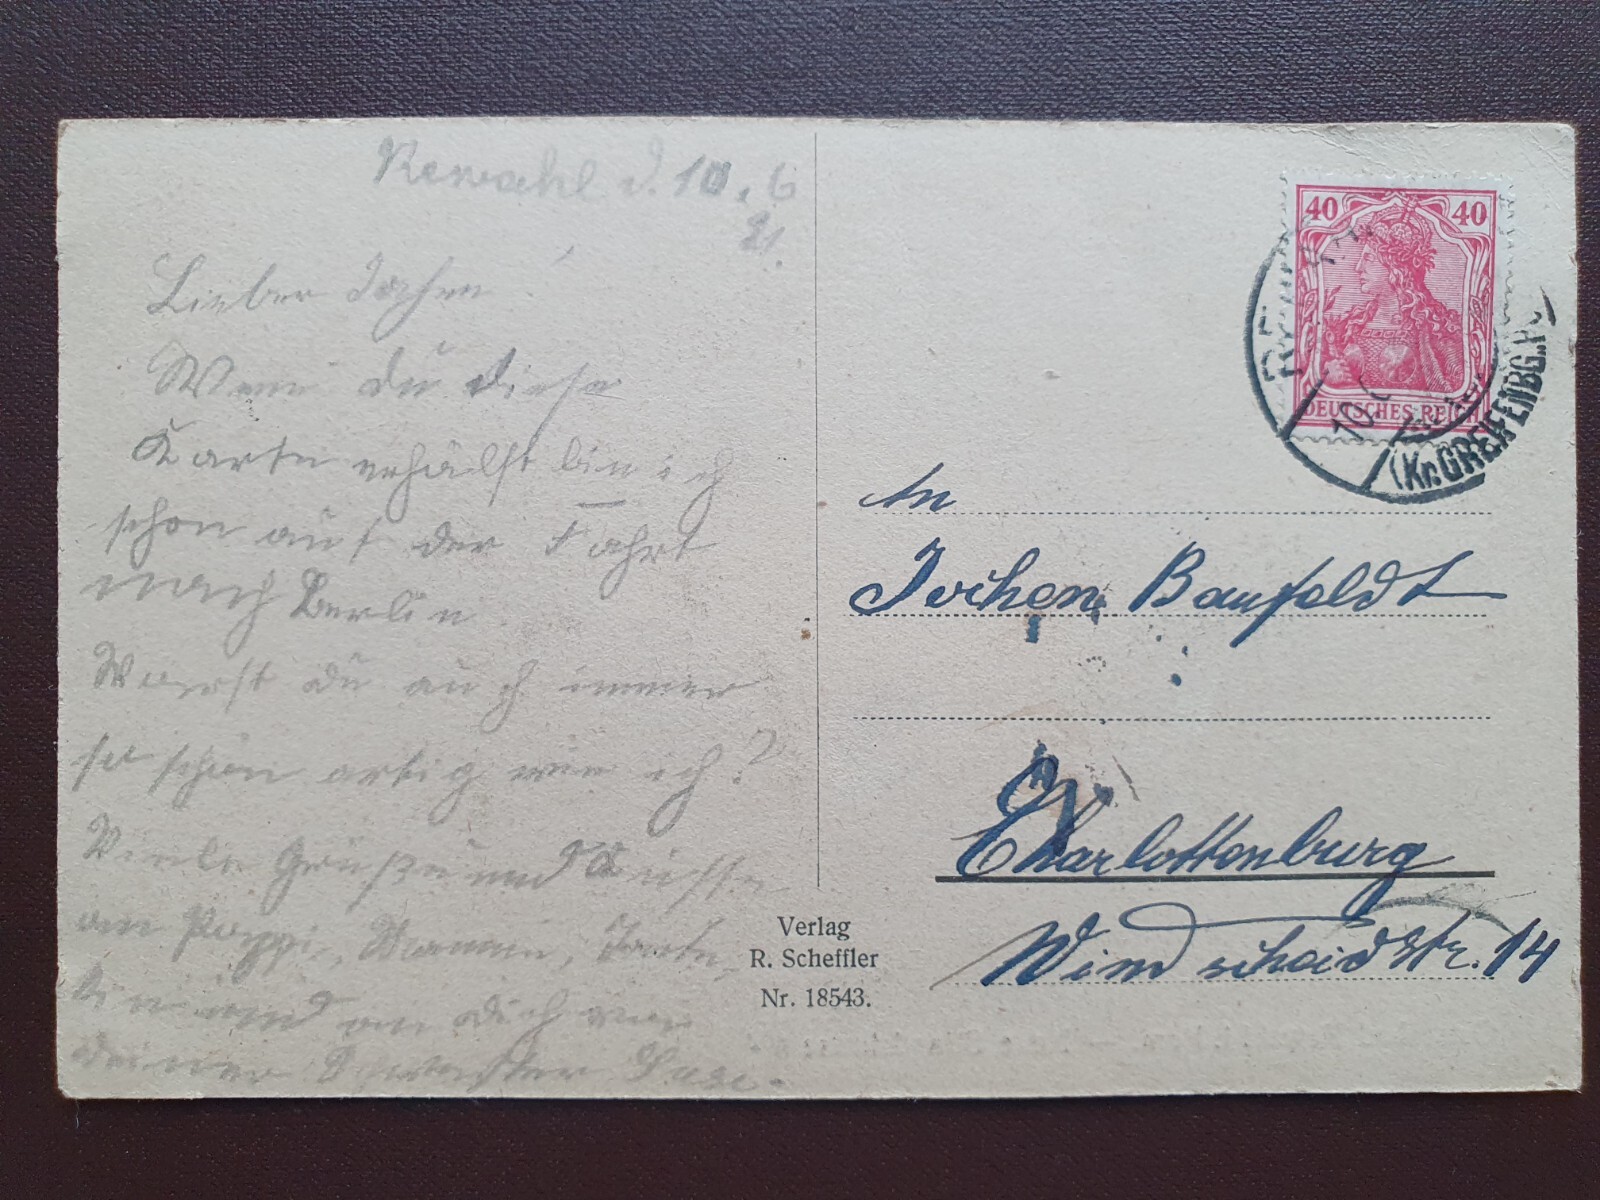 Rewahl d. 10. 6
21.
Lieber Jochen!
Wenn du diese
Karte erhälst bin ich
schon auf der Fahrt
nach Berlin.
Warst du auch immer
so schön artig wie ich?
Viele Grüße und Küsse
an Pappi, Mammi, Tante
und an dich von
deiner Schwester Suse.
40 40
DEUTSCHES REICH
REWAHL
10.
(Kr. GREIFENBG.P.)
An
Jochen Baufeldt
Charlottenburg
Windscheidstr. 14
Verlag
R. Scheffler
Nr. 18543.